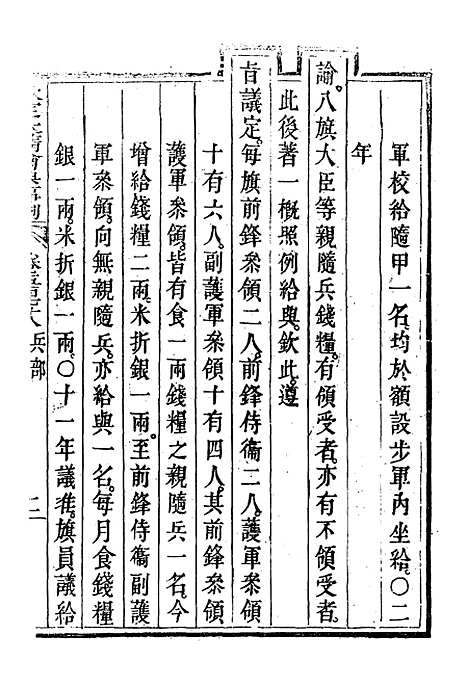 軍校給隨甲一名。均於額設步軍內坐給。〇二
年
諭。八旗大臣等親隨兵錢糧。有領受者。亦有不領受者。
此後著一概照例給與。欽此。遵
旨議定。每旗前鋒叅領二人。前鋒侍衞二人。護軍叅領
十有六人。副護軍叅領十有四人。其前鋒叅領
護軍叅領。皆有食一兩錢糧之親隨兵一名。今
增給錢糧二兩。米折銀一兩。至前鋒侍衞副護
軍叅領。向無親隨兵。亦給與一名。每月食錢糧
銀一兩。米折銀一兩。〇十一年議准。旗員議給
兵部